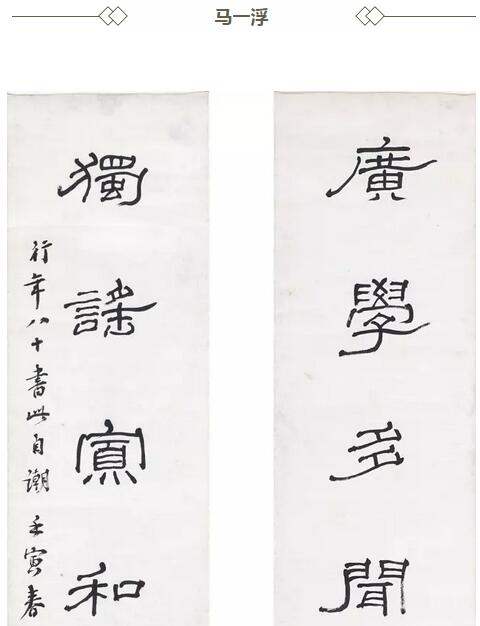 马一浮
廣學多聞
獨謠寡和
行年八十書此自潮 壬寅春